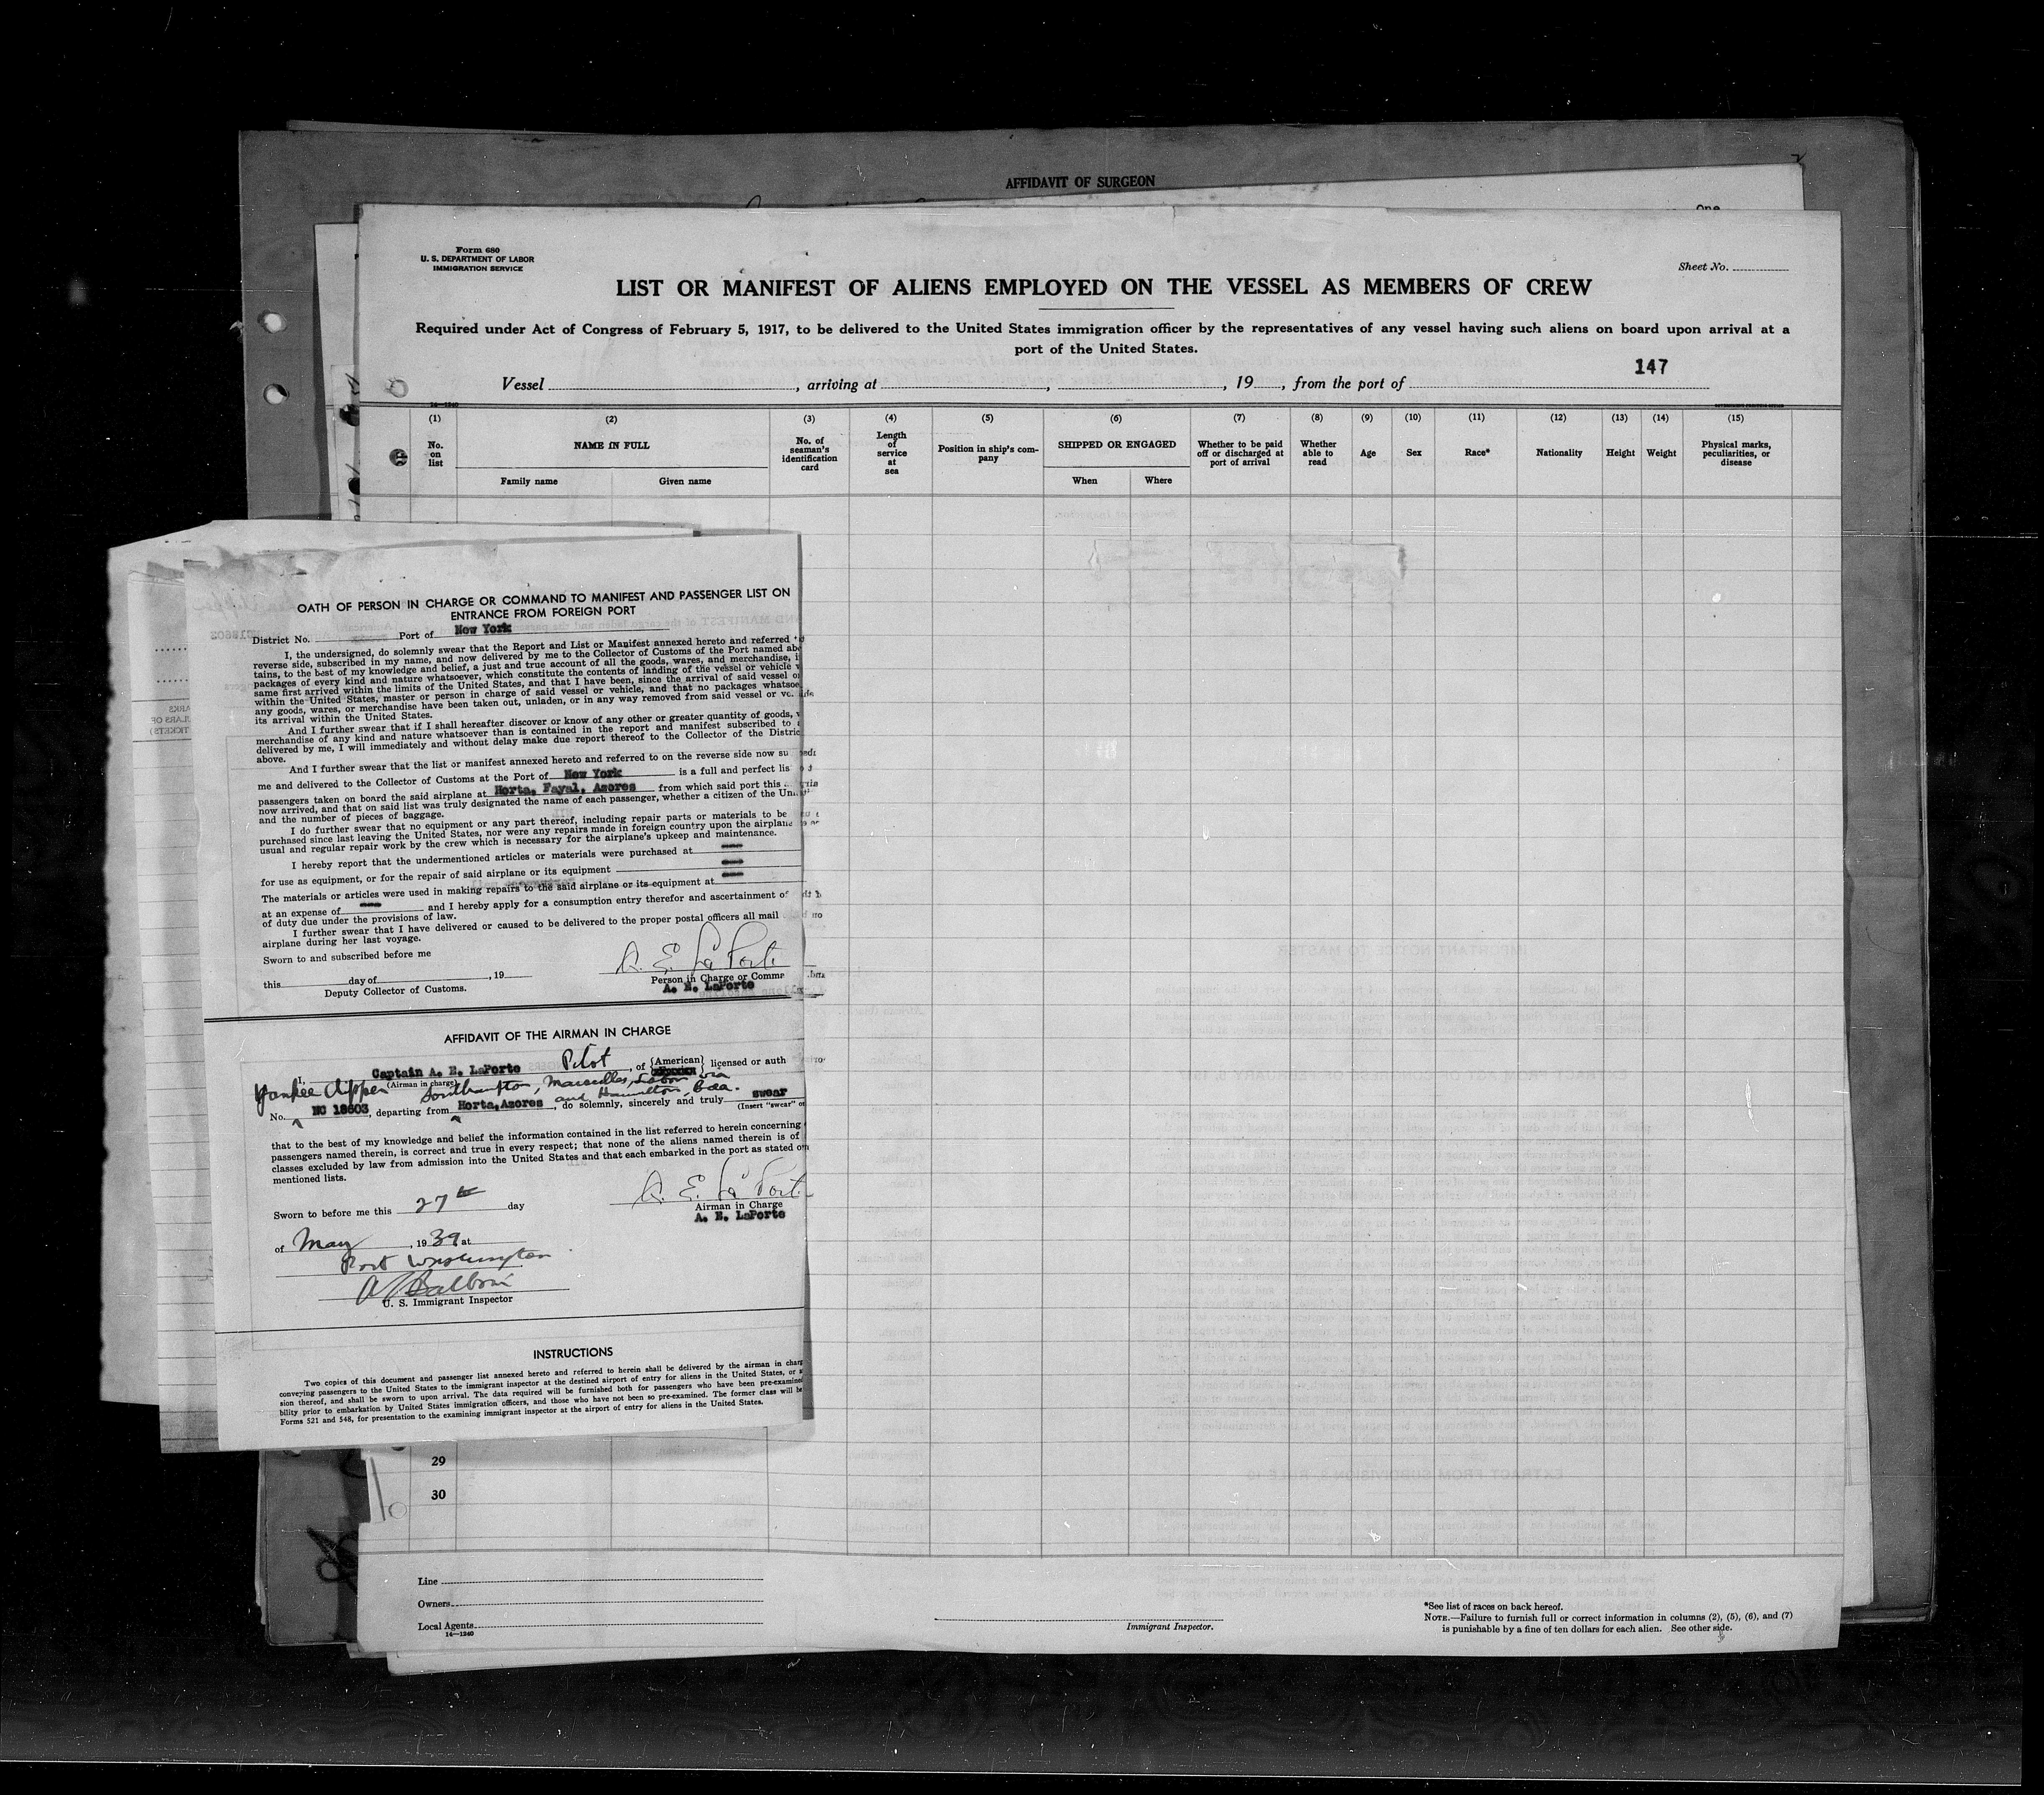 AFFIDAVIT OF SURGEON
One
Form 680
U. S. DEPARTMENT OF LABOR
IMMIGRATION SERVICE
Sheet No.
LIST OR MANIFEST OF ALIENS EMPLOYED ON THE VESSEL AS MEMBERS OF CREW
Required under Act of Congress of February 5, 1917, to be delivered to the United States immigration officer by the representatives of any vessel having such aliens on board upon arrival at a
port of the United States.
147
Vessel , arriving at , , 19 , from the port of
14—1240
(1) (2) (3) (4) (5) (6) (7) (8) (9) (10) (11) (12) (13) (14) (15)
No. on list
NAME IN FULL
Family name Given name
No. of seaman's identification card
Length of service at sea
Position in ship's company
SHIPPED OR ENGAGED
When Where
Whether to be paid off or discharged at port of arrival
Whether able to read
Age
Sex
Race*
Nationality
Height
Weight
Physical marks, peculiarities, or disease
OATH OF PERSON IN CHARGE OR COMMAND TO MANIFEST AND PASSENGER LIST ON
ENTRANCE FROM FOREIGN PORT
District No. Port of New York
I, the undersigned, do solemnly swear that the Report and List or Manifest annexed hereto and referred
reverse side, subscribed in my name, and now delivered by me to the Collector of Customs of the Port named
tains, to the best of my knowledge and belief, a just and true account of all the goods, wares, and merchandise,
packages of every kind and nature whatsoever, which constitute the contents of landing of the vessel or vehicle
same first arrived within the limits of the United States, and that I have been, since the arrival of said vessel
within the United States, master or person in charge of said vessel or vehicle, and that no packages
any goods, wares, or merchandise have been taken out, unladen, or in any way removed from said vessel or
its arrival within the United States.
And I further swear that if I shall hereafter discover or know of any other or greater quantity of goods,
merchandise of any kind and nature whatsoever than is contained in the report and manifest subscribed to
delivered by me, I will immediately and without delay make due report thereof to the Collector of the
above.
And I further swear that the list or manifest annexed hereto and referred to on the reverse side now
me and delivered to the Collector of Customs at the Port of New York is a full and perfect
passengers taken on board the said airplane at Horta, Fayal, Azores from which said port this
now arrived, and that on said list was truly designated the name of each passenger, whether a citizen of the
and the number of pieces of baggage.
I do further swear that no equipment or any part thereof, including repair parts or materials to be
purchased since last leaving the United States, nor were any repairs made in foreign country upon the
usual and regular repair work by the crew which is necessary for the airplane's upkeep and maintenance.
I hereby report that the undermentioned articles or materials were purchased at
for use as equipment, or for the repair of said airplane or its equipment
The materials or articles were used in making repairs to the said airplane or its equipment at
at an expense of and I hereby apply for a consumption entry therefor and ascertainment of
of duty due under the provisions of law.
I further swear that I have delivered or caused to be delivered to the proper postal officers all mail
airplane during her last voyage.
Sworn to and subscribed before me
A. E. LaPorte
this day of , 19
Person in Charge or
Deputy Collector of Customs.
A. E. LaPorte
AFFIDAVIT OF THE AIRMAN IN CHARGE
I, Captain A. E. LaPorte Pilot , of {American} licensed or
(Airman in charge)
Yankee Clipper Southampton, Marseilles, Lisbon via
and Hamilton, Bda.
No. NC 18603, departing from Horta, Azores , do solemnly, sincerely and truly swear
(Insert "swear"
that to the best of my knowledge and belief the information contained in the list referred to herein concerning
passengers named therein, is correct and true in every respect; that none of the aliens named therein is of
classes excluded by law from admission into the United States and that each embarked in the port as stated
mentioned lists.
A. E. LaPorte
Sworn to before me this 27th day
Airman in Charge
A. E. LaPorte
of May , 1939 at
Port Washington
U. S. Immigrant Inspector
INSTRUCTIONS
Two copies of this document and passenger list annexed hereto and referred to herein shall be delivered by the airman in
conveying passengers to the United States to the immigrant inspector at the destined airport of entry for aliens in the United States, or
sion thereof, and shall be sworn to upon arrival. The data required will be furnished both for passengers who have been
bility prior to embarkation by United States immigration officers, and those who have not been so pre-examined. The former class will
Forms 521 and 548, for presentation to the examining immigrant inspector at the airport of entry for aliens in the United States.
29
30
Line
Owners
Local Agents
14—1240
Immigrant Inspector.
*See list of races on back hereof.
NOTE.—Failure to furnish full or correct information in columns (2), (5), (6), and (7)
is punishable by a fine of ten dollars for each alien. See other side.